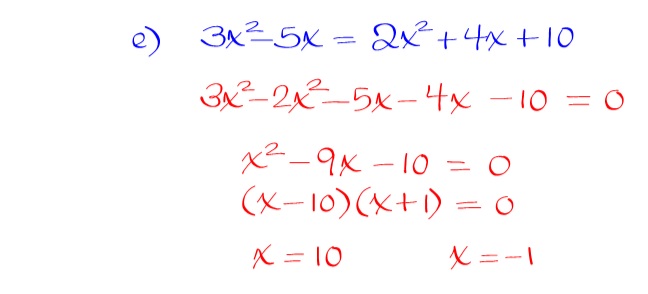 e) 3x²-5x = 2x²+4x+10
3x²-2x²-5x-4x-10 = 0
x²-9x-10 = 0
(x-10)(x+1) = 0
x = 10 x = -1